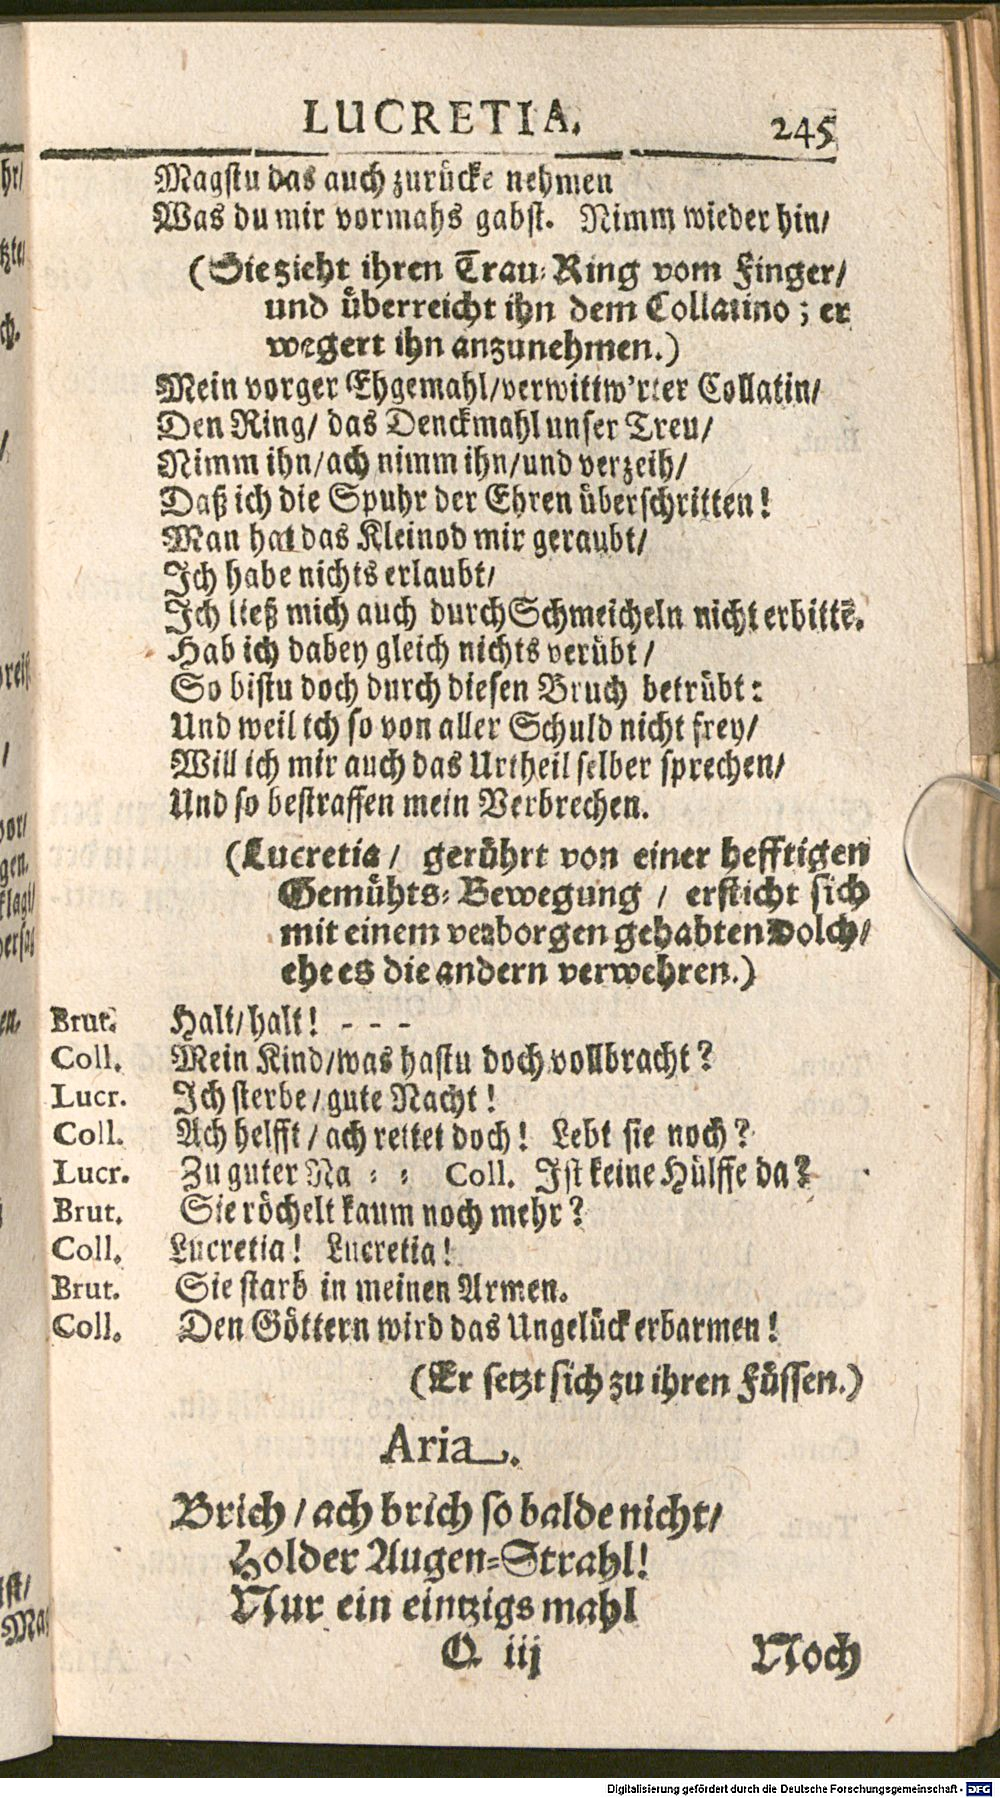 LUCRETIA. 245
Magstu das auch zurücke nehmen
Was du mir vormahs gabst. Nimm wieder hin/
(Sie zieht ihren Trau-Ring vom Finger/
und überreicht ihn dem Collatino; er
wegert ihn anzunehmen.)
Mein vorger Ehgemahl/verwittw'rter Collatin/
Den Ring/ das Denckmahl unser Treu/
Nimm ihn/ach nimm ihn/und verzeih/
Daß ich die Spuhr der Ehren überschritten!
Man hat das Kleinod mir geraubt/
Ich habe nichts erlaubt/
Ich ließ mich auch durch Schmeicheln nicht erbittē.
Hab ich dabey gleich nichts verübt/
So bistu doch durch diesen Bruch betrübt:
Und weil ich so von aller Schuld nicht frey/
Will ich mir auch das Urtheil selber sprechen/
Und so bestraffen mein Verbrechen.
(Lucretia/ gerührt von einer hefftigen
Gemühts-Bewegung/ ersticht sich
mit einem verborgen gehabten Dolch/
ehe es die andern verwehren.)
Brut. Halt/halt! - - -
Coll. Mein Kind/was hastu doch vollbracht?
Lucr. Ich sterbe/gute Nacht!
Coll. Ach helfft/ach rettet doch! Lebt sie noch?
Lucr. Zu guter Na - - Coll. Ist keine Hülffe da?
Brut. Sie röchelt kaum noch mehr?
Coll. Lucretia! Lucretia!
Brut. Sie starb in meinen Armen.
Coll. Den Göttern wird das Ungelück erbarmen!
(Er setzt sich zu ihren Füssen.)
Aria.
Brich/ach brich so balde nicht/
Holder Augen-Strahl!
Nur ein eintzigs mahl
Q iij Noch
Digitalisierung gefördert durch die Deutsche Forschungsgemeinschaft - DFG